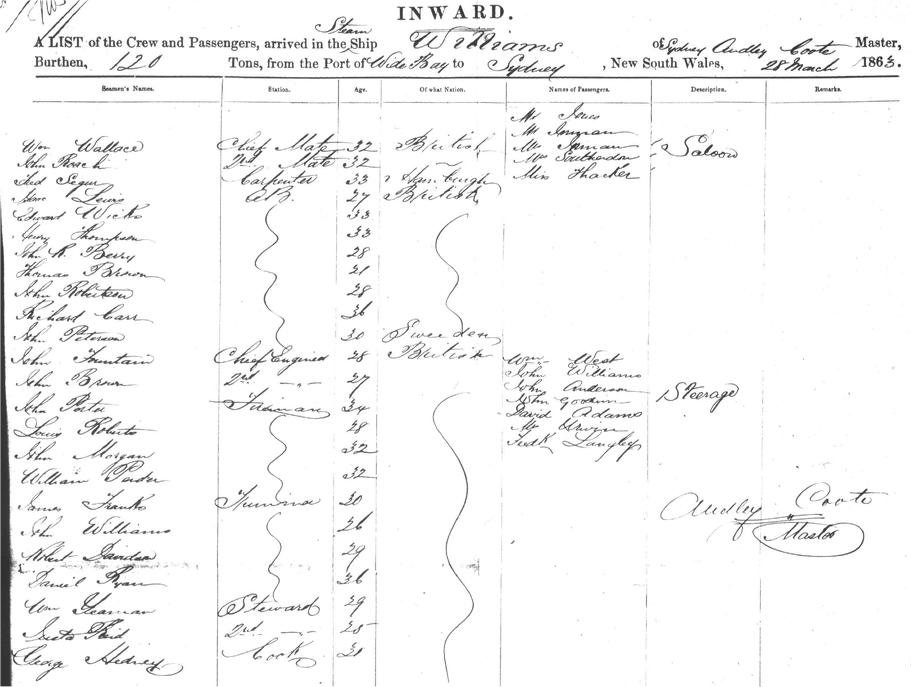 INWARD.
Steam
A LIST of the Crew and Passengers, arrived in the Ship Williams of Sydney Audley Coote Master,
Burthen, 120 Tons, from the Port of Wide Bay to Sydney, New South Wales, 28 March 1863.
Seamen's Names. Station. Age. Of what Nation. Names of Passengers. Description. Remarks.
Mr Jones
Mr Inman
Wm Wallace Chief Mate 32 British Mrs Inman Saloon
John Roach 2nd Mate 32 Mrs
Fred Carpenter 33 Hamburgh Miss Thacker
Lewis A.B. 27 British
Edward Wicks 33
Henry Thompson 33
John R. Berry 28
Thomas Brown 21
John Robertson 28
Richard Carr 36
John Peterson 30 Sweden
John Fountain Chief Engineer 28 British Wm West
John Williams
John Brown 2nd -"- 27 John Anderson Steerage
John Porter Fireman 34 John Goodwin
David Adams
Louis Roberts 28 Mr Irwin
Fredk Langley
John Morgan 32
William 32
James Franks 30 Audley Coote
John Williams 26 Master
Robert Davidson 29
Daniel Ryan 36
Wm Yeaman Steward 29
Reid 2nd -"- 25
George Hedney Cook 21